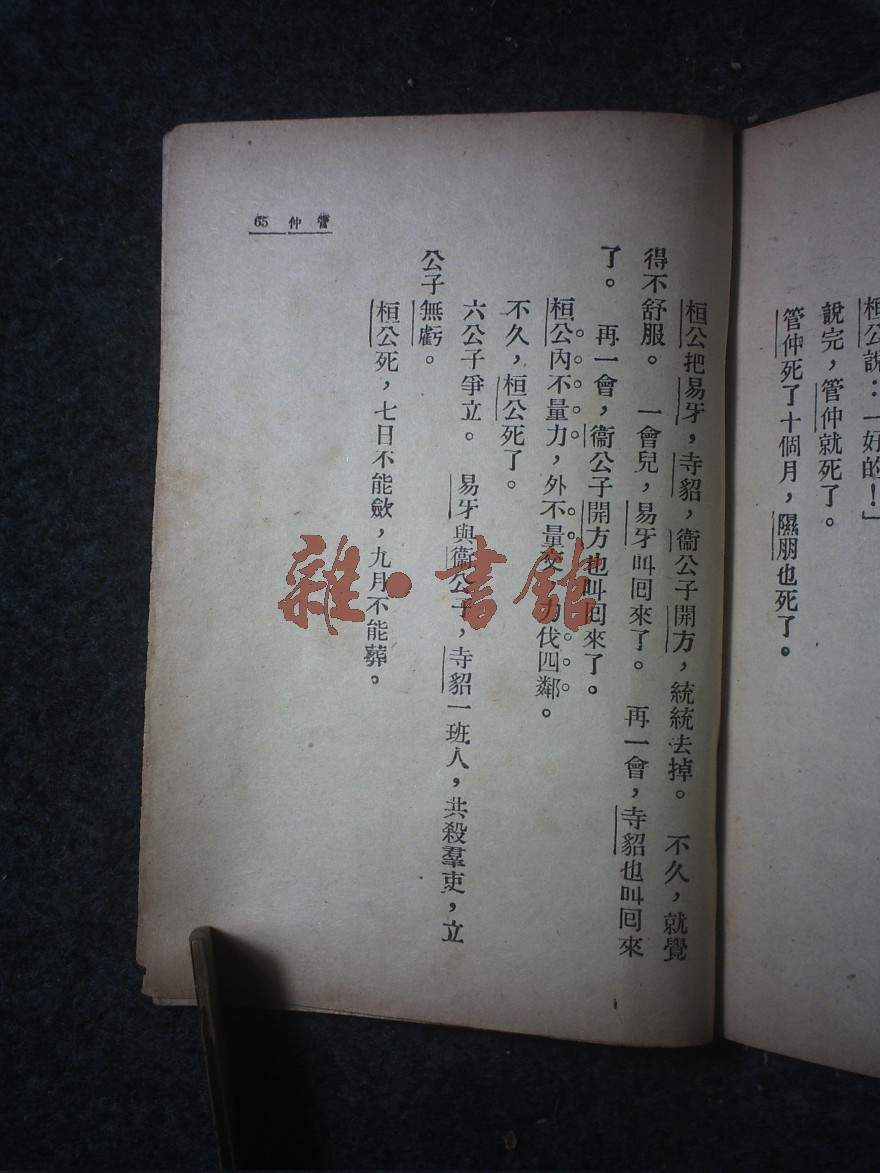 桓公說：「好的！」
說完，管仲就死了。
管仲死了十個月，隰朋也死了。
管仲 65
桓公把易牙，寺貂，衞公子開方，統統去掉。 不久，就覺
得不舒服。 一會兒，易牙叫囘來了。 再一會，寺貂也叫囘來
了。 再一會，衞公子開方也叫囘來了。
桓公內不量力，外不量交，力伐四鄰。
不久，桓公死了。
六公子爭立。 易牙與衞公子，寺貂一班人，共殺羣吏，立
公子無虧。
桓公死，七日不能歛，九月不能葬。
雜·書館